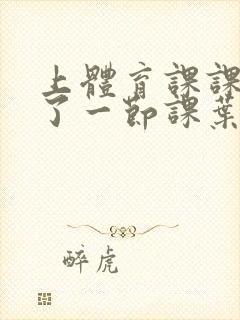 上體育課課
了一節課葉
醉虎